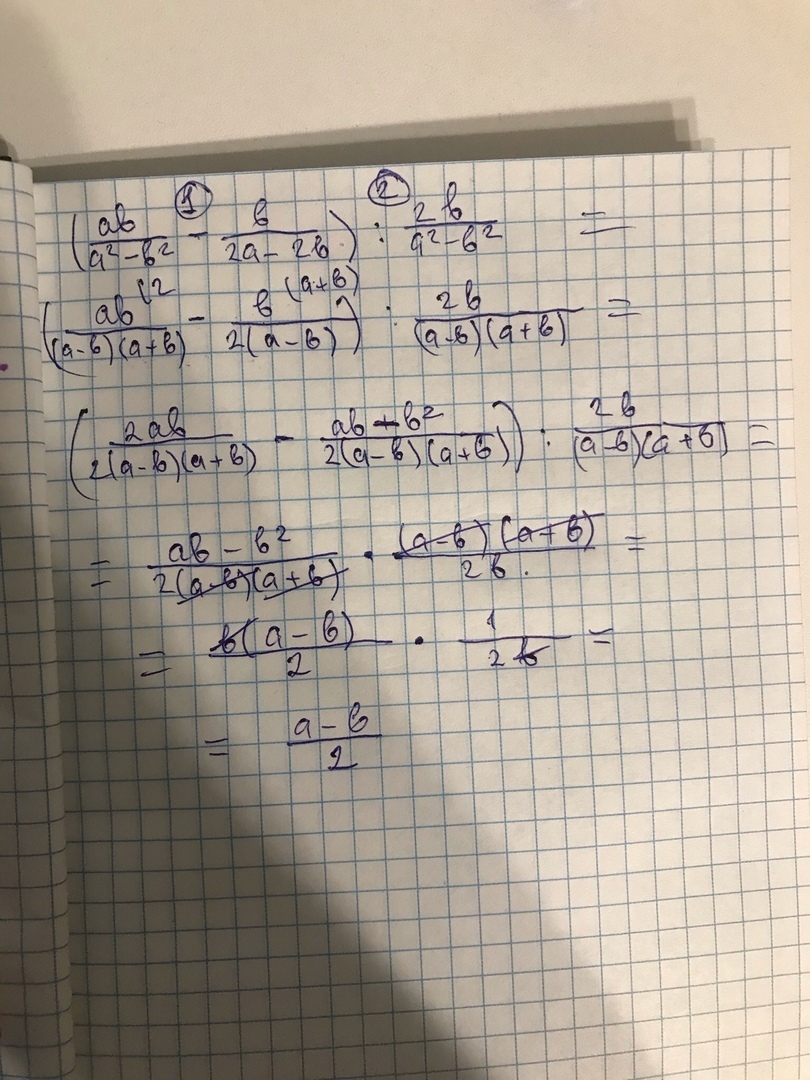 ① ②
(ab/(a²-b²) - b/(2a-2b)) : 2b/(a²-b²) =
(ab(2/((a-b)(a+b)) - b(a+b)/(2(a-b))) : 2b/((a-b)(a+b)) =
(2ab/(2(a-b)(a+b)) - (ab+b²)/(2(a-b)(a+b))) : 2b/((a-b)(a+b)) =
= (ab-b²)/(2(a-b)(a+b)) · (a-b)(a+b)/(2b) =
= b(a-b)/2 · 1/(2b) =
= (a-b)/2